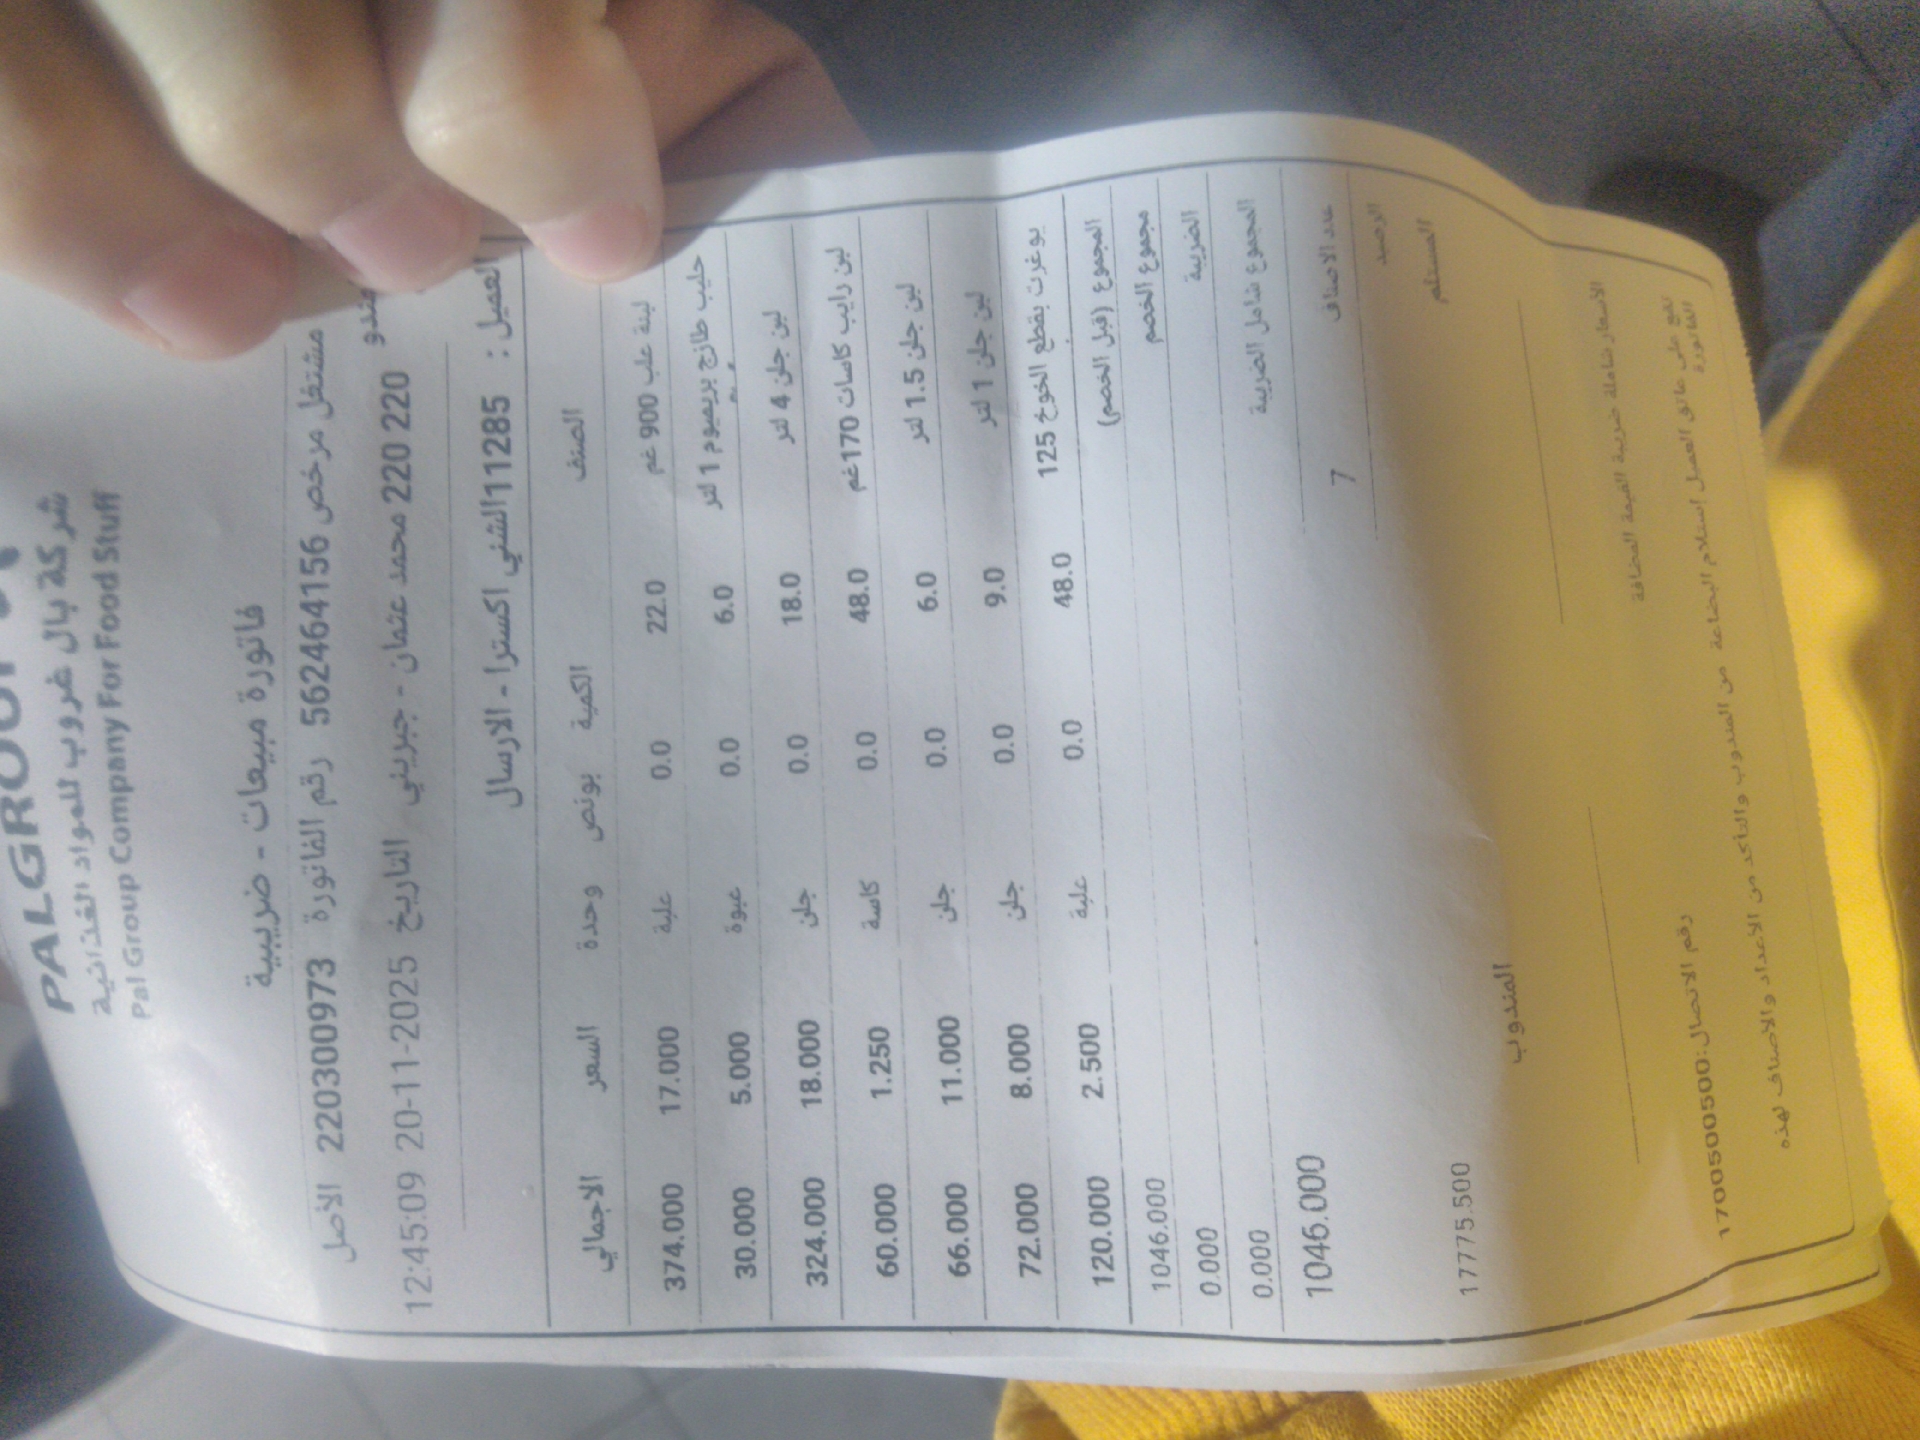 PALGROUP
شركة بال غروب للمواد الغذائية
Pal Group Company For Food Stuff
فاتورة مبيعات - ضريبية
مشتغل مرخص 562464156 رقم الفاتورة 2203009​73 الاصل
220 220 محمد عثمان - جبريني التاريخ 20-11-2025 12:45:09
العميل : 11285الشني اكسترا - الارسال
الصنف الكمية بونص وحدة السعر الاجمالي
لبنة علب 900 غم 22.0 0.0 علبة 17.000 374.000
حليب طازج بريميوم 1 لتر 6.0 0.0 عبوة 5.000 30.000
لبن جلن 4 لتر 18.0 0.0 جلن 18.000 324.000
لبن رايب كاسات 170غم 48.0 0.0 كاسة 1.250 60.000
لبن جلن 1.5 لتر 6.0 0.0 جلن 11.000 66.000
لبن جلن 1 لتر 9.0 0.0 جلن 8.000 72.000
يوغرت بقطع الخوخ 125 48.0 0.0 علبة 2.500 120.000
المجموع (قبل الخصم) 1046.000
مجموع الخصم 0.000
الضريبة 0.000
المجموع شامل الضريبة 1046.000
عدد الاصناف 7
الرصيد 17775.500
المستلم المندوب
الاسعار شاملة ضريبة القيمة المضافة
رقم الاتصال:1700500500
تقع على عاتق العميل إستلام البضاعة من المندوب والتأكد من الاعداد والاصناف لهذه
الفاتورة